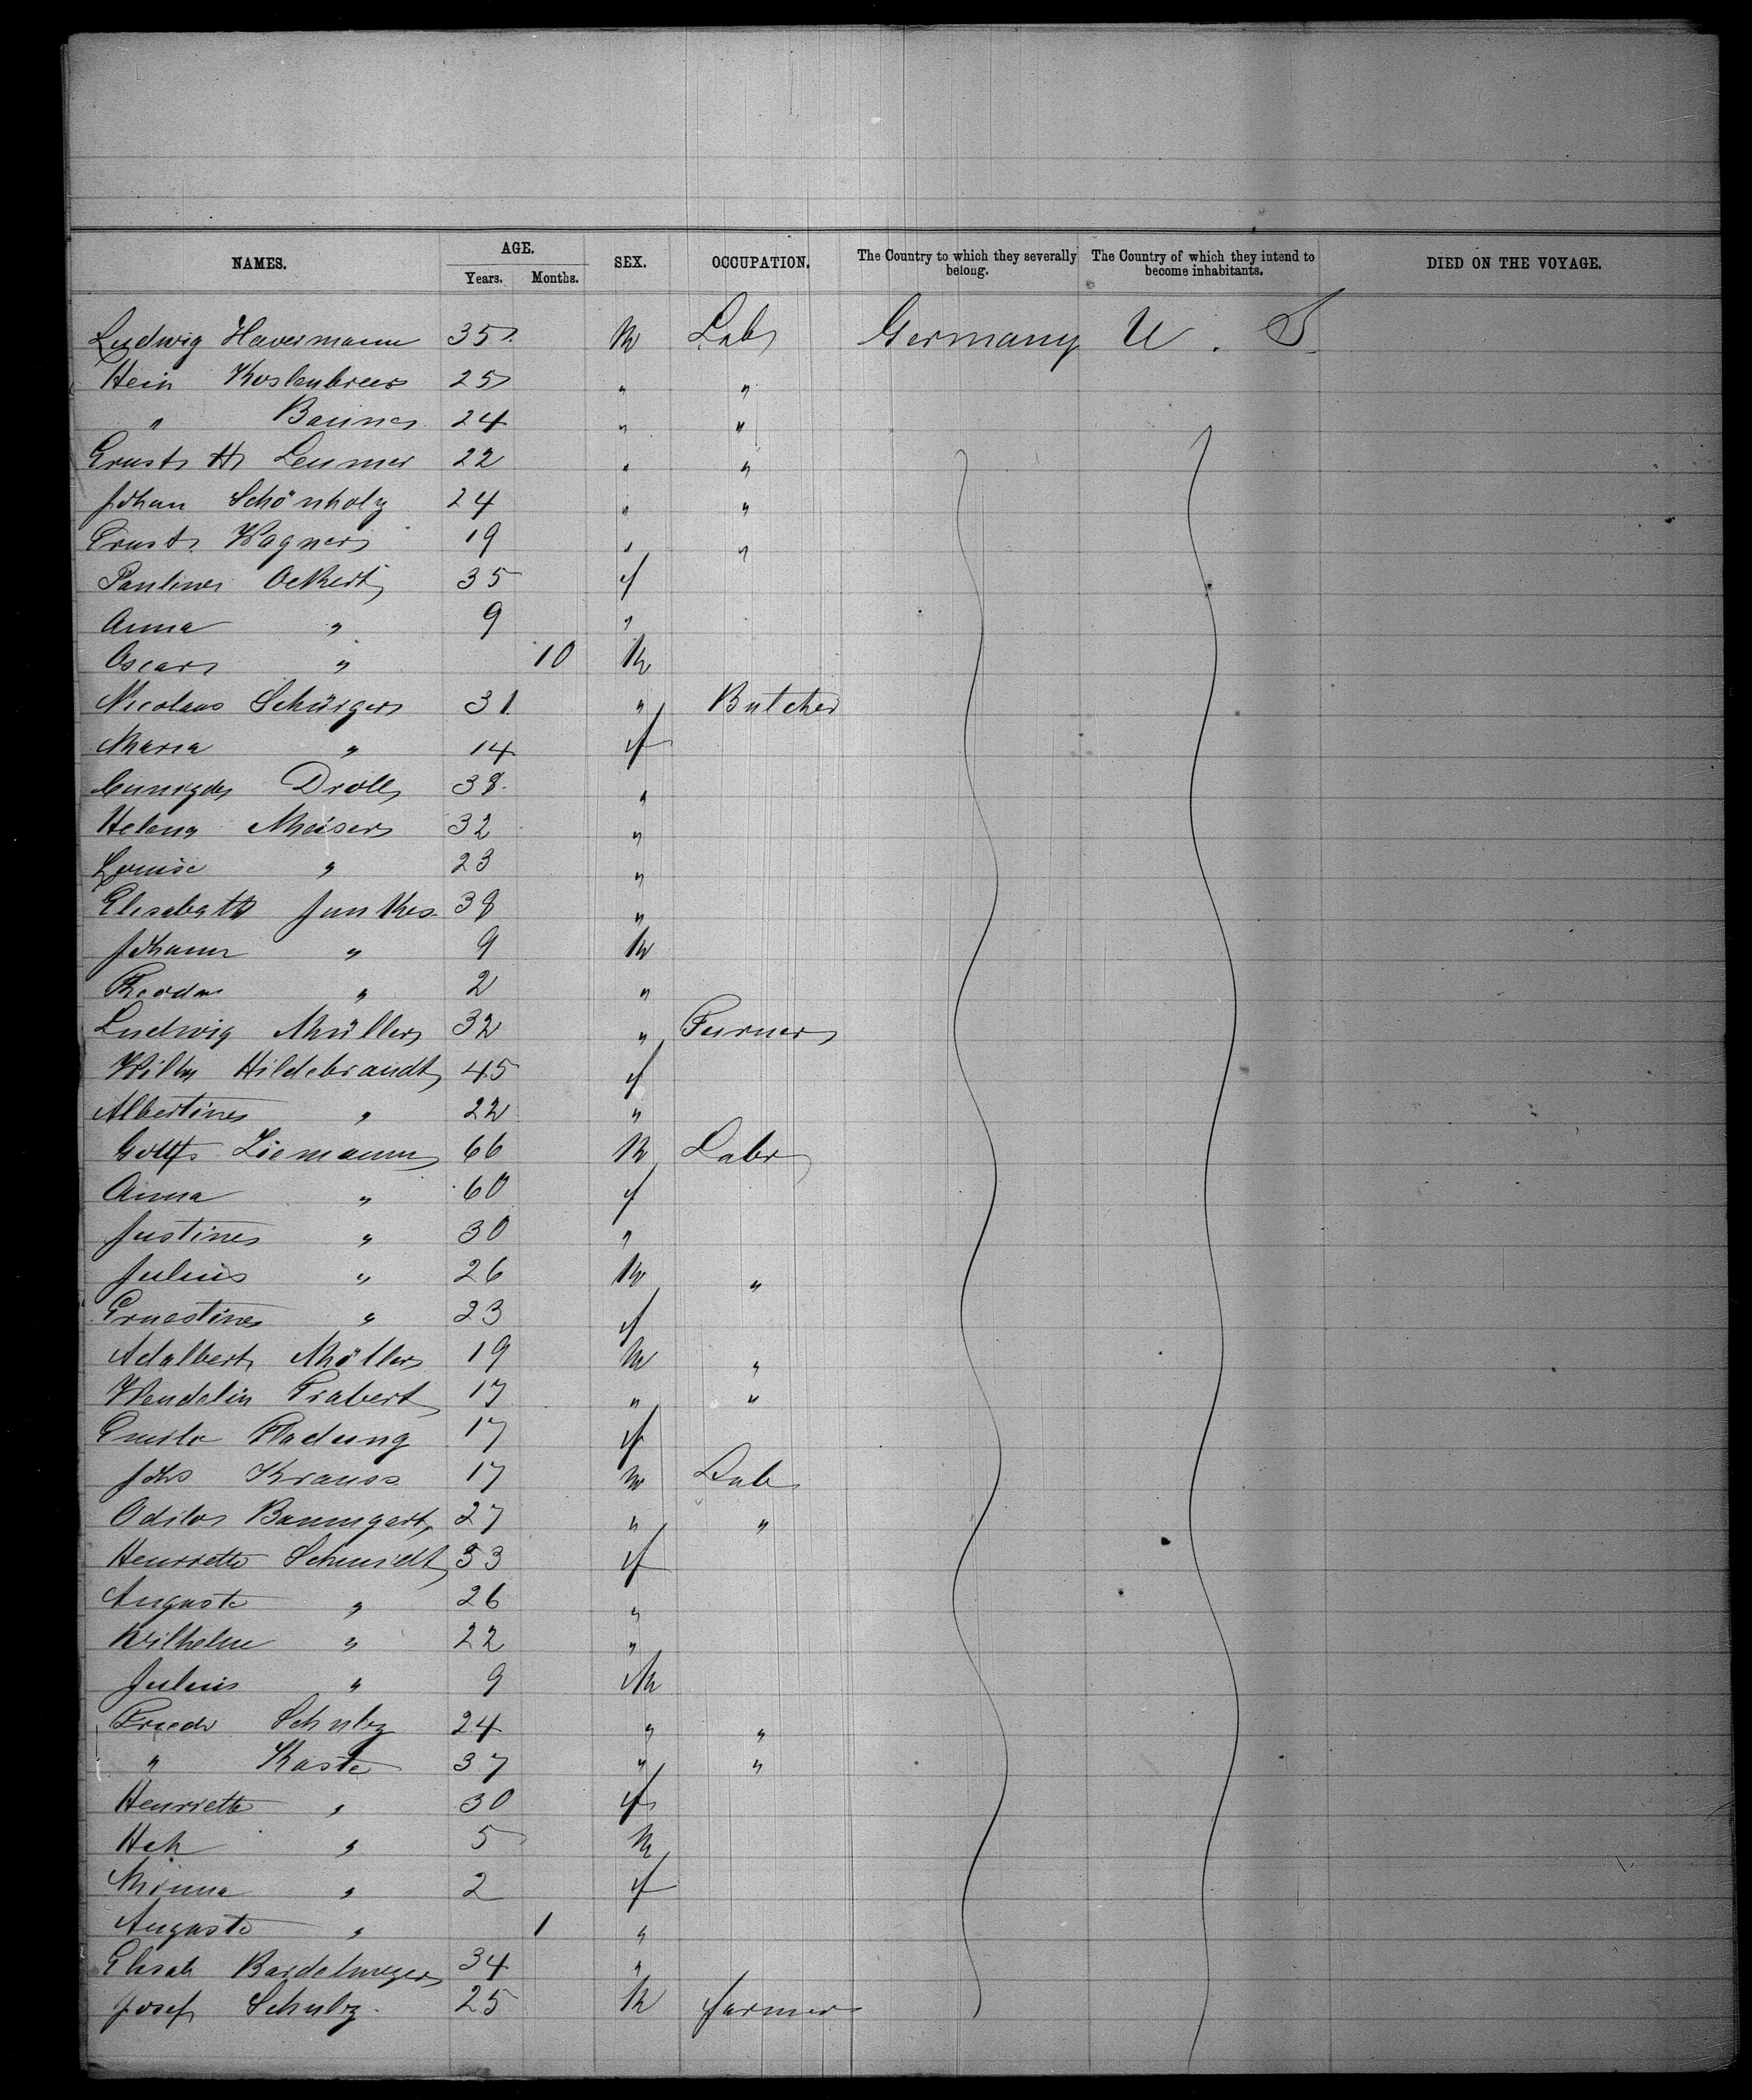 NAMES. AGE. SEX. OCCUPATION. The Country to which they severally belong. The Country of which they intend to become inhabitants. DIED ON THE VOYAGE.
Years. Months.
Ludwig Havermann 35 M Lab Germany U. S.
Hein 25 " "
" 24 " "
Ernst H 22 " "
Johan Schönholz 24 " "
Ernst Wagner 19 " "
Pauline Ockert 35 f
Anna " 9 "
Oscar " 10 M
Nicolaus Schürger 31 " Butcher
Maria " 14 f
Droll 38 "
Helena Meiser 32 "
Louise " 23 "
Elisabeth Junkes 38 "
Johann " 9 M
Theodor " 2 "
Ludwig Müller 32 " Turner
Wilhe Hildebrandt 45 f
Albertine " 22 "
Gottf Ziemann 66 M Labr
Anna " 60 f
Justine " 30 "
Julius " 26 M "
Ernestine " 23 f
Adalbert Möller 19 M "
Wendelin Trabert 17 " "
Emile Fladung 17 f
Johs Krauss 17 M Lab
Odilo Baumgart 27 " "
Henriette Schmidt 53 f
Auguste " 26 "
Wilhelm " 22 "
Julius " 9 M
Friedr Schulz 24 " "
" Kaste 37 " "
Henriette " 30 f
Hch " 5 M
Minna " 2 f
Auguste " 1 "
Elisab 34 "
Josef Schulz 25 M farmer